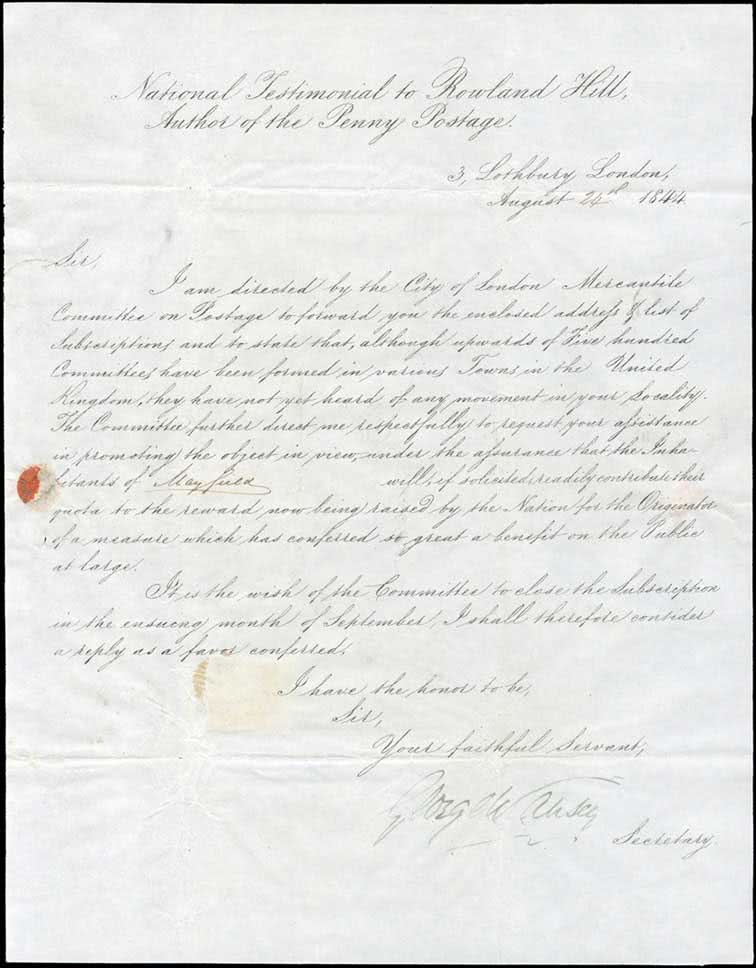 National Testimonial to Rowland Hill,
Author of the Penny Postage.
3, Lothbury London,
August 24th 1844
Sir,
I am directed by the City of London Mercantile
Committee on Postage to forward you the enclosed address & list of
Subscriptions and to state that, although upwards of Five hundred
Committees have been formed in various Towns in the United
Kingdom, they have not yet heard of any movement in your Locality.
The Committee further direct me respectfully to request your assistance
in promoting the object in view, under the assurance that the Inha-
bitants of Mayfield will, if solicited, readily contribute their
quota to the reward now being raised by the Nation for the Originator
of a measure which has conferred so great a benefit on the Public
at large.
It is the wish of the Committee to close the Subscription
in the ensuing month of September, I shall therefore consider
a reply as a favor conferred.
I have the honor to be,
Sir,
Your faithful Servant,
Secretary